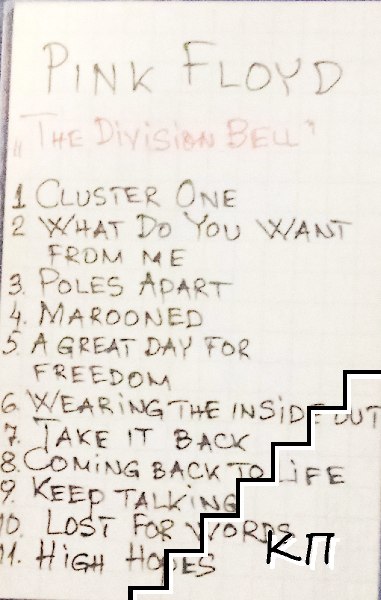 PINK FLOYD
„THE DIVISION BELL"
1 CLUSTER ONE
2 WHAT DO YOU WANT
FROM ME
3. POLES APART
4. MAROONED
5. A GREAT DAY FOR
FREEDOM
6. WEARING THE INSIDE OUT
7. TAKE IT BACK
8. COMING BACK TO LIFE
9. KEEP TALKING
10. LOST FOR WORDS
11. HIGH HOPES
КП